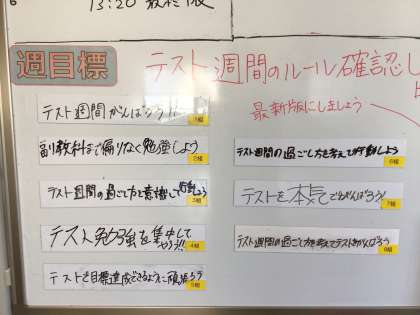 6
13:20 最終版
週目標
テスト週間のルール確認し
最新版にしましょう
テスト週間がんばろう!!
1組
副教科まで偏りなく勉強しよう
2組
テスト週間の過ごし方を意識して行動しよう
3組
テスト勉強を集中して
やろう!!
4組
テストを目標達成できるように頑張ろう
5組
テスト週間の過ごし方を考えて行動しよう
6組
テストを本気でがんばろう!
7組
テスト週間の過ごし方を考えてテストをがんばろう
8組